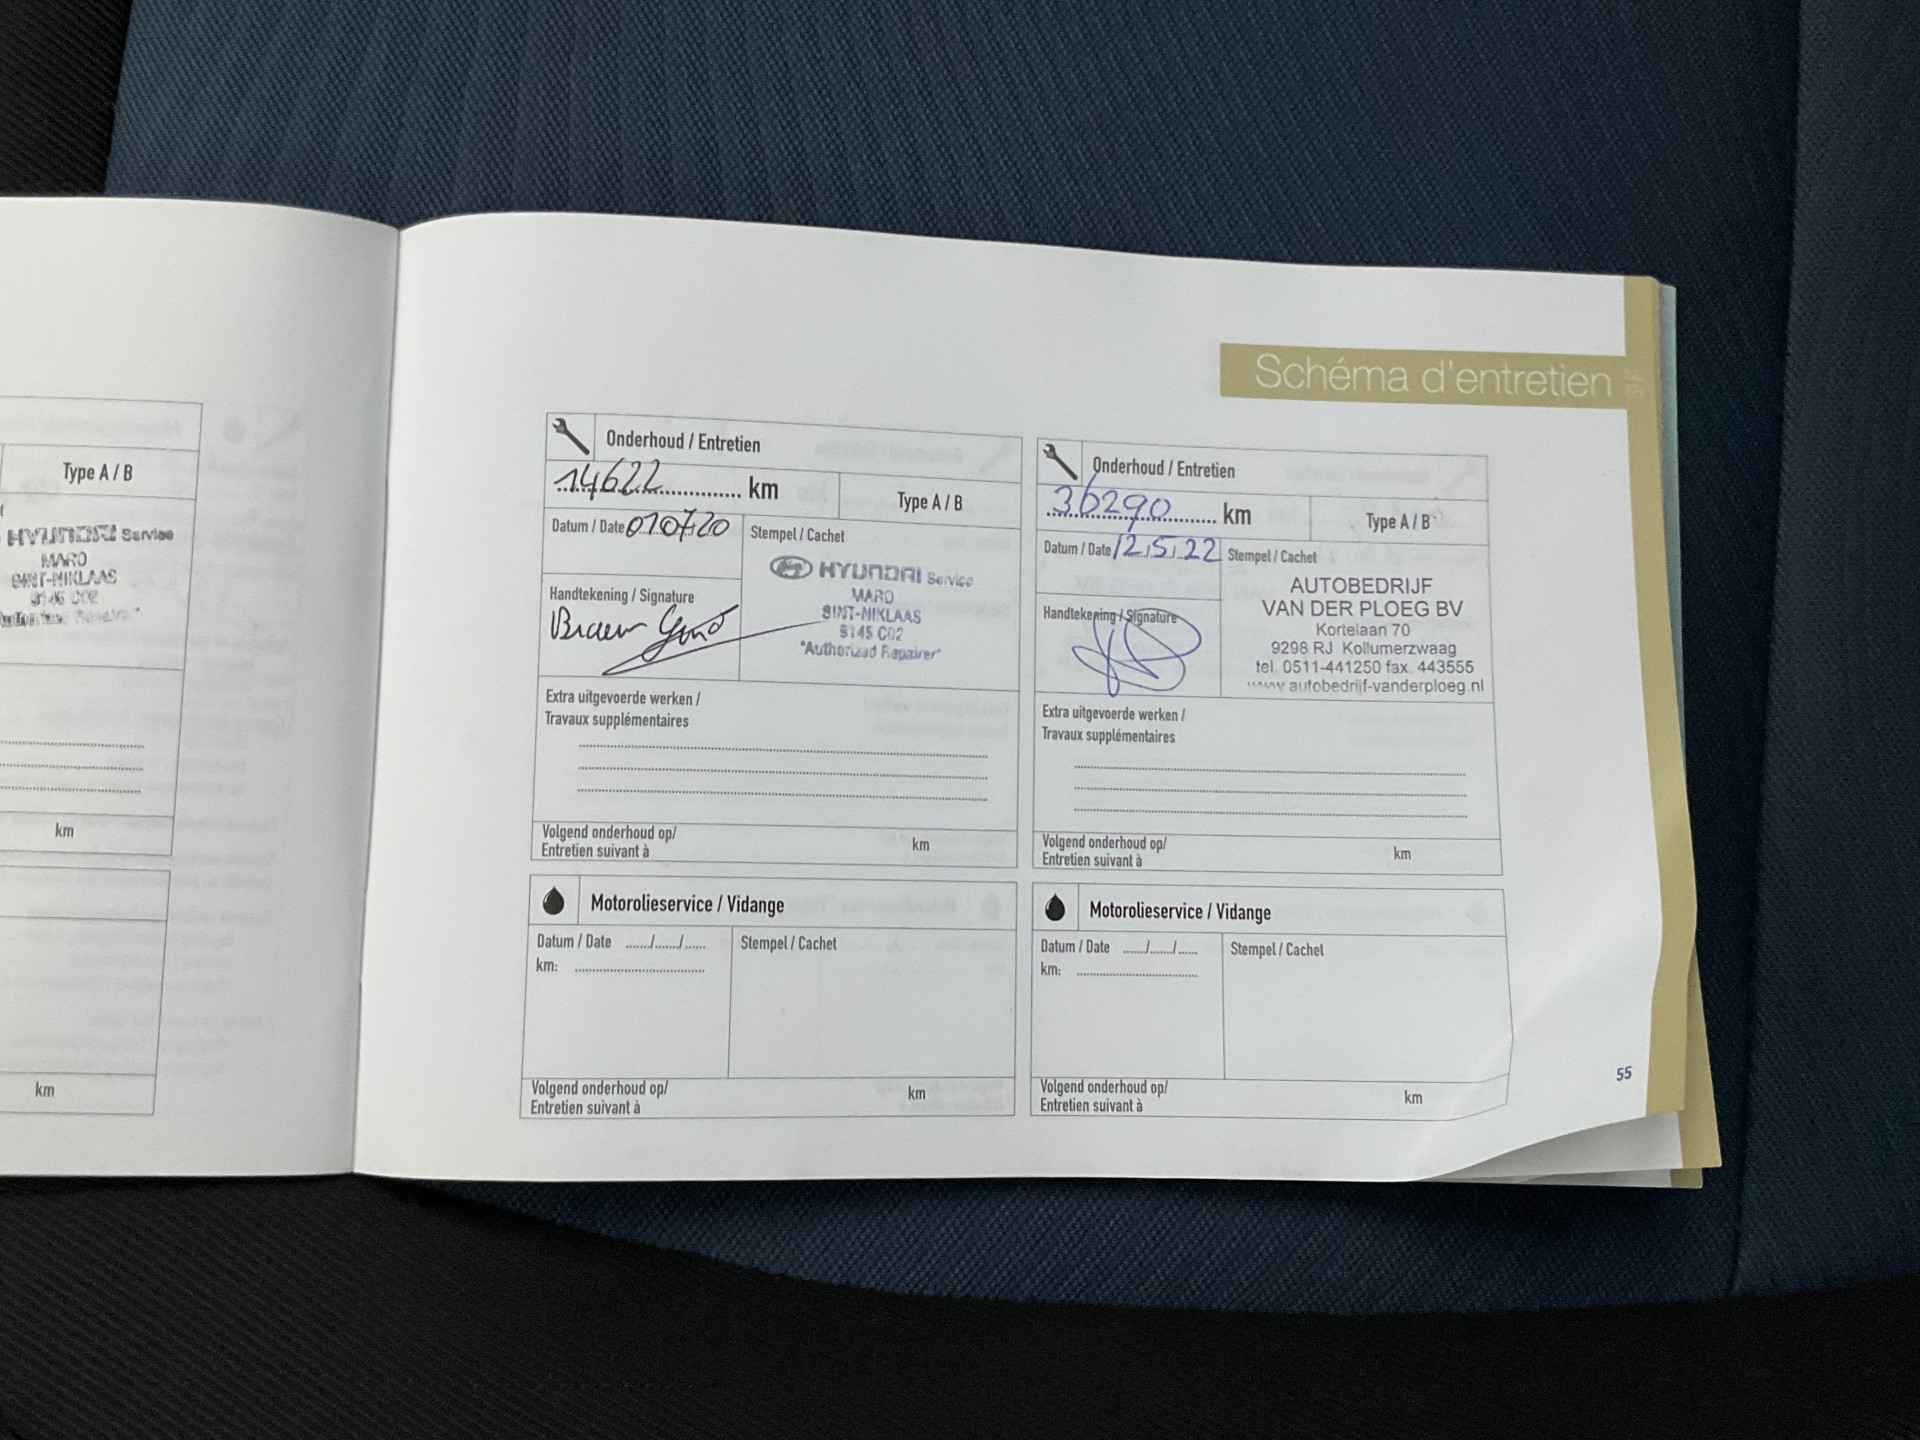 Type A / B
HYUNDAI Service
MARO
SINT-NIKLAAS
9145 C02
km
km
Schéma d'entretien
Onderhoud / Entretien
14622 km
Type A / B
Datum / Date 010720
Stempel / Cachet
HYUNDAI Service
MARO
SINT-NIKLAAS
9145 C02
"Authorized Repairer"
Handtekening / Signature
Extra uitgevoerde werken /
Travaux supplémentaires
Volgend onderhoud op/
Entretien suivant à
km
Motorolieservice / Vidange
Datum / Date ....../....../......
km:
Stempel / Cachet
Volgend onderhoud op/
Entretien suivant à
km
Onderhoud / Entretien
36290 km
Type A / B
Datum / Date 12.5.22
Stempel / Cachet
AUTOBEDRIJF
VAN DER PLOEG BV
Kortelaan 70
9298 RJ Kollumerzwaag
tel. 0511-441250 fax. 443555
www.autobedrijf-vanderploeg.nl
Handtekening / Signature
Extra uitgevoerde werken /
Travaux supplémentaires
Volgend onderhoud op/
Entretien suivant à
km
Motorolieservice / Vidange
Datum / Date ....../....../......
km:
Stempel / Cachet
Volgend onderhoud op/
Entretien suivant à
km
55